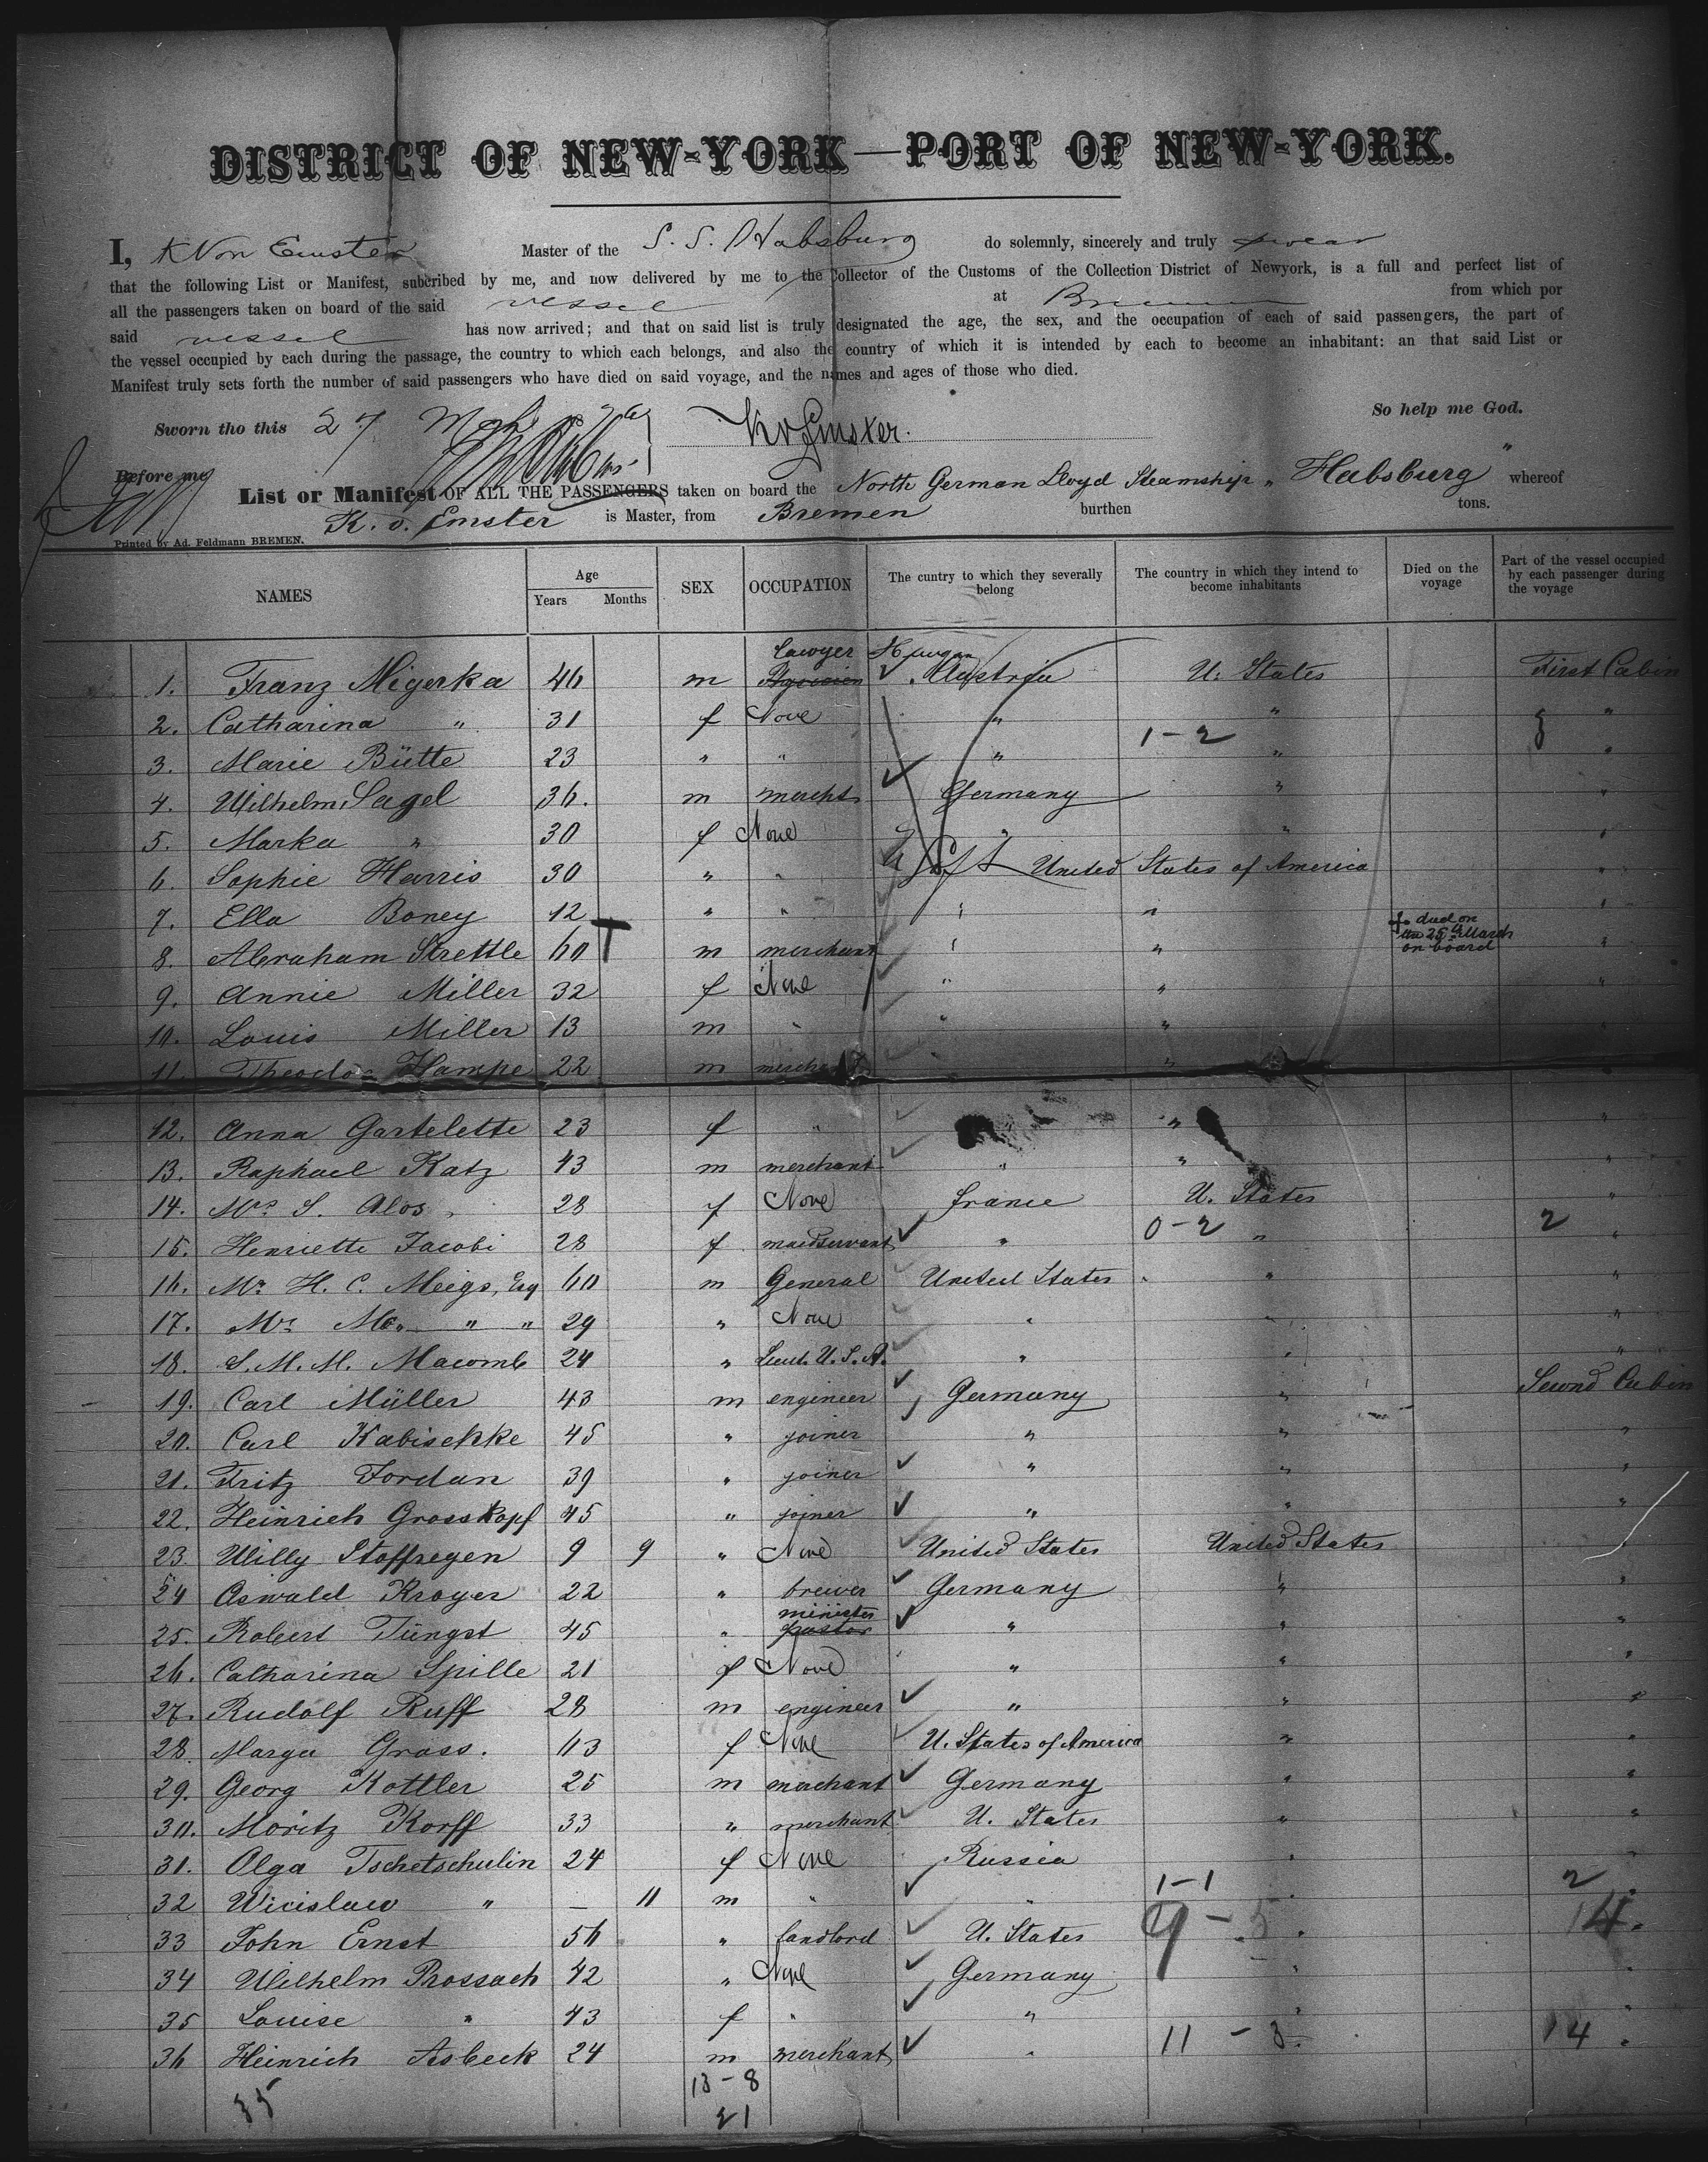 DISTRICT OF NEW-YORK—PORT OF NEW-YORK.
I, K Von Emster Master of the S. S. Habsburg do solemnly, sincerely and truly swear
that the following List or Manifest, subcribed by me, and now delivered by me to the Collector of the Customs of the Collection District of Newyork, is a full and perfect list of
all the passengers taken on board of the said vessel at Bremen from which por
said vessel has now arrived; and that on said list is truly designated the age, the sex, and the occupation of each of said passengers, the part of
the vessel occupied by each during the passage, the country to which each belongs, and also the country of which it is intended by each to become an inhabitant: an that said List or
Manifest truly sets forth the number of said passengers who have died on said voyage, and the names and ages of those who died.
So help me God.
Sworn tho this 27 K v Emster.
Before me
List or Manifest OF ALL THE PASSENGERS taken on board the North German Lloyd Steamship „Habsburg" whereof
K. v. Emster is Master, from Bremen burthen tons.
Printed by Ad. Feldmann BREMEN.
NAMES Age Years Months SEX OCCUPATION The cuntry to which they severally belong The country in which they intend to become inhabitants Died on the voyage Part of the vessel occupied by each passenger during the voyage
lawyer Hungan
1. Franz Migerka 46 m Austria U. States First Cabin
2. Catharina " 31 f None " " "
1-2 8
3. Marie Bütte 23 " " " " "
4. Wilhelm Sagel 36. m mercht Germany " "
5. Marka " 30 f None " " "
6. Sophie Harris 30 " " United States of America "
7. Ella Boney 12 " " " " "
8. Abraham Strettle 60 m merchant " " died on 25th March on board "
9. Annie Miller 32 f None " " "
10. Louis Miller 13 m " " " "
11. Theodor Hampe 22 m merchant " "
12. Anna Gartelette 23 f " " "
13. Raphael Katz 43 m merchant " " "
14. Mrs S. Alos 28 f None France U. States "
0-2 2
15. Henriette Jacobi 28 f maidservant " " "
16. Mr H. C. Meigs, Esq 60 m General United States " "
17. Mr " " 29 " None " " "
18. S. M. M. Macomb 24 " Lieut. U. S. A. " " "
19. Carl Müller 43 m engineer Germany " Second Cabin
20. Carl Kabischke 45 " joiner " " "
21. Fritz Jordan 39 " joiner " " "
22. Heinrich Grosskopf 45 " joiner " " "
23. Willy Stoffregen 9 9 " None United States United States
24 Oswald Kroyer 22 " brewer Germany " "
minister
25. Robert Tüngst 45 " pastor " " "
26. Catharina Spille 21 f None " " "
27. Rudolf Ruff 28 m engineer " " "
28. Marga Grass. 63 f None U. States of America " "
29. Georg Kottler 25 m merchant Germany " "
30. Moritz Korff 33 " merchant U. States " "
31. Olga Tschetschulin 24 f None Russia " "
1-1 2
32 " — 11 m " " " "
9-5 14
33 John Ernst 56 " landlord U. States " "
34 Wilhelm Prossach 42 " None Germany " "
35 Louise " 43 f " " " "
11-3 14
36 Heinrich Asbeck 24 m merchant " "
13-8
35 21